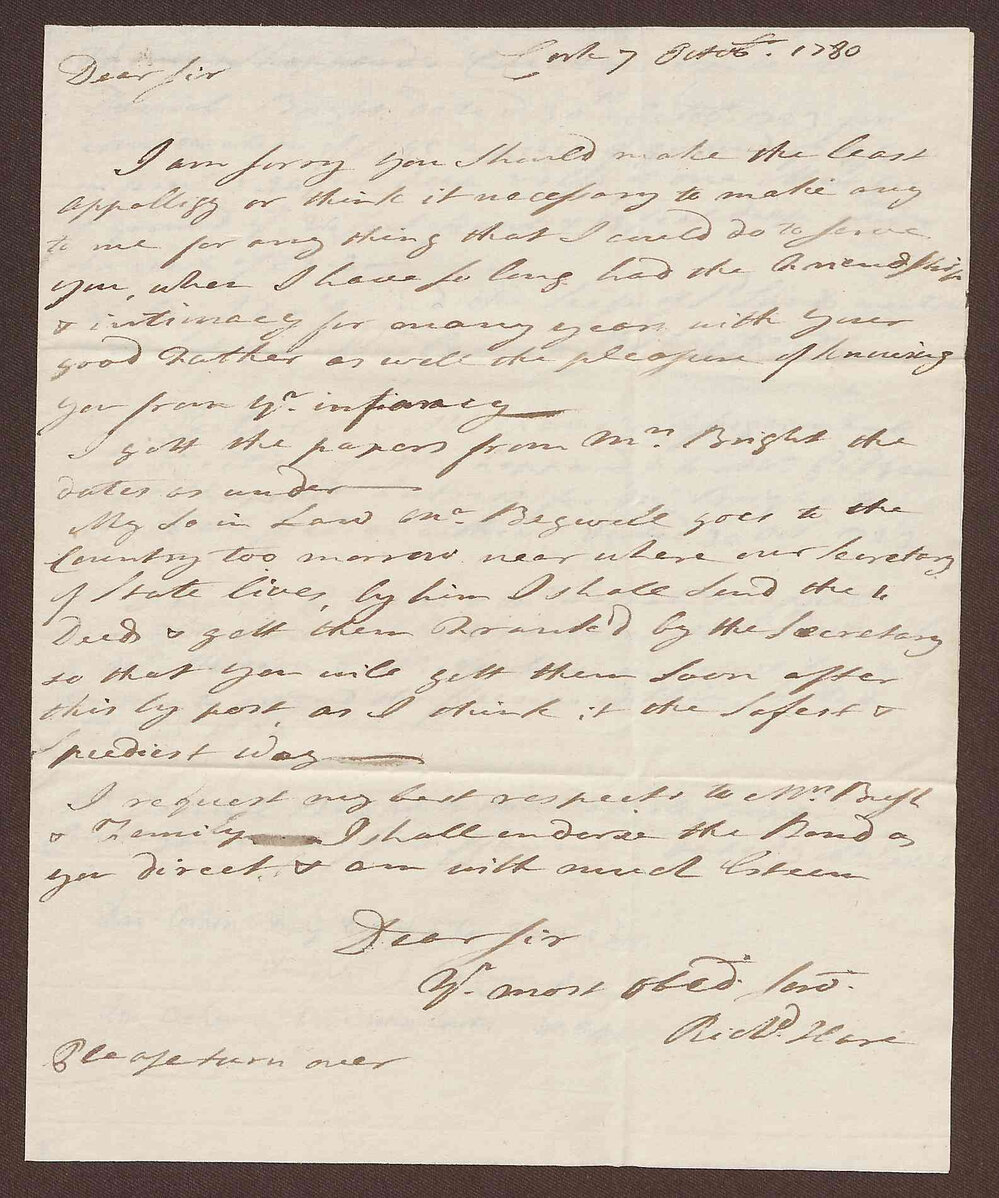 Cork 7 Octob^r. 1780
Dear Sir
I am sorry you should make the least
appollogy or think it necessary to make any
to me for any thing that I could do to serve
you, when I have so long had the Friendship
& intimacy for many years with your
good Father as well the pleasure of knowing
you from y^r. infancy
I gott the papers from M^rs Bright the
dates as under
My So in Law M^r. Bagwell goes to the
Country too morrow near where our Secretary
of State lives, by him I shall send the 4
Deeds & gett them Frank'd by the Secretary
so that you will gett them soon after
this by post, as I think it the safest &
speediest way
I request my best respects to M^rs
& Family I shall endorse the Bond as
you direct, & am with much Esteem
Dear Sir
Y^r. most Obed^t. Serv^t.
Rich^d. Hare
Please turn over